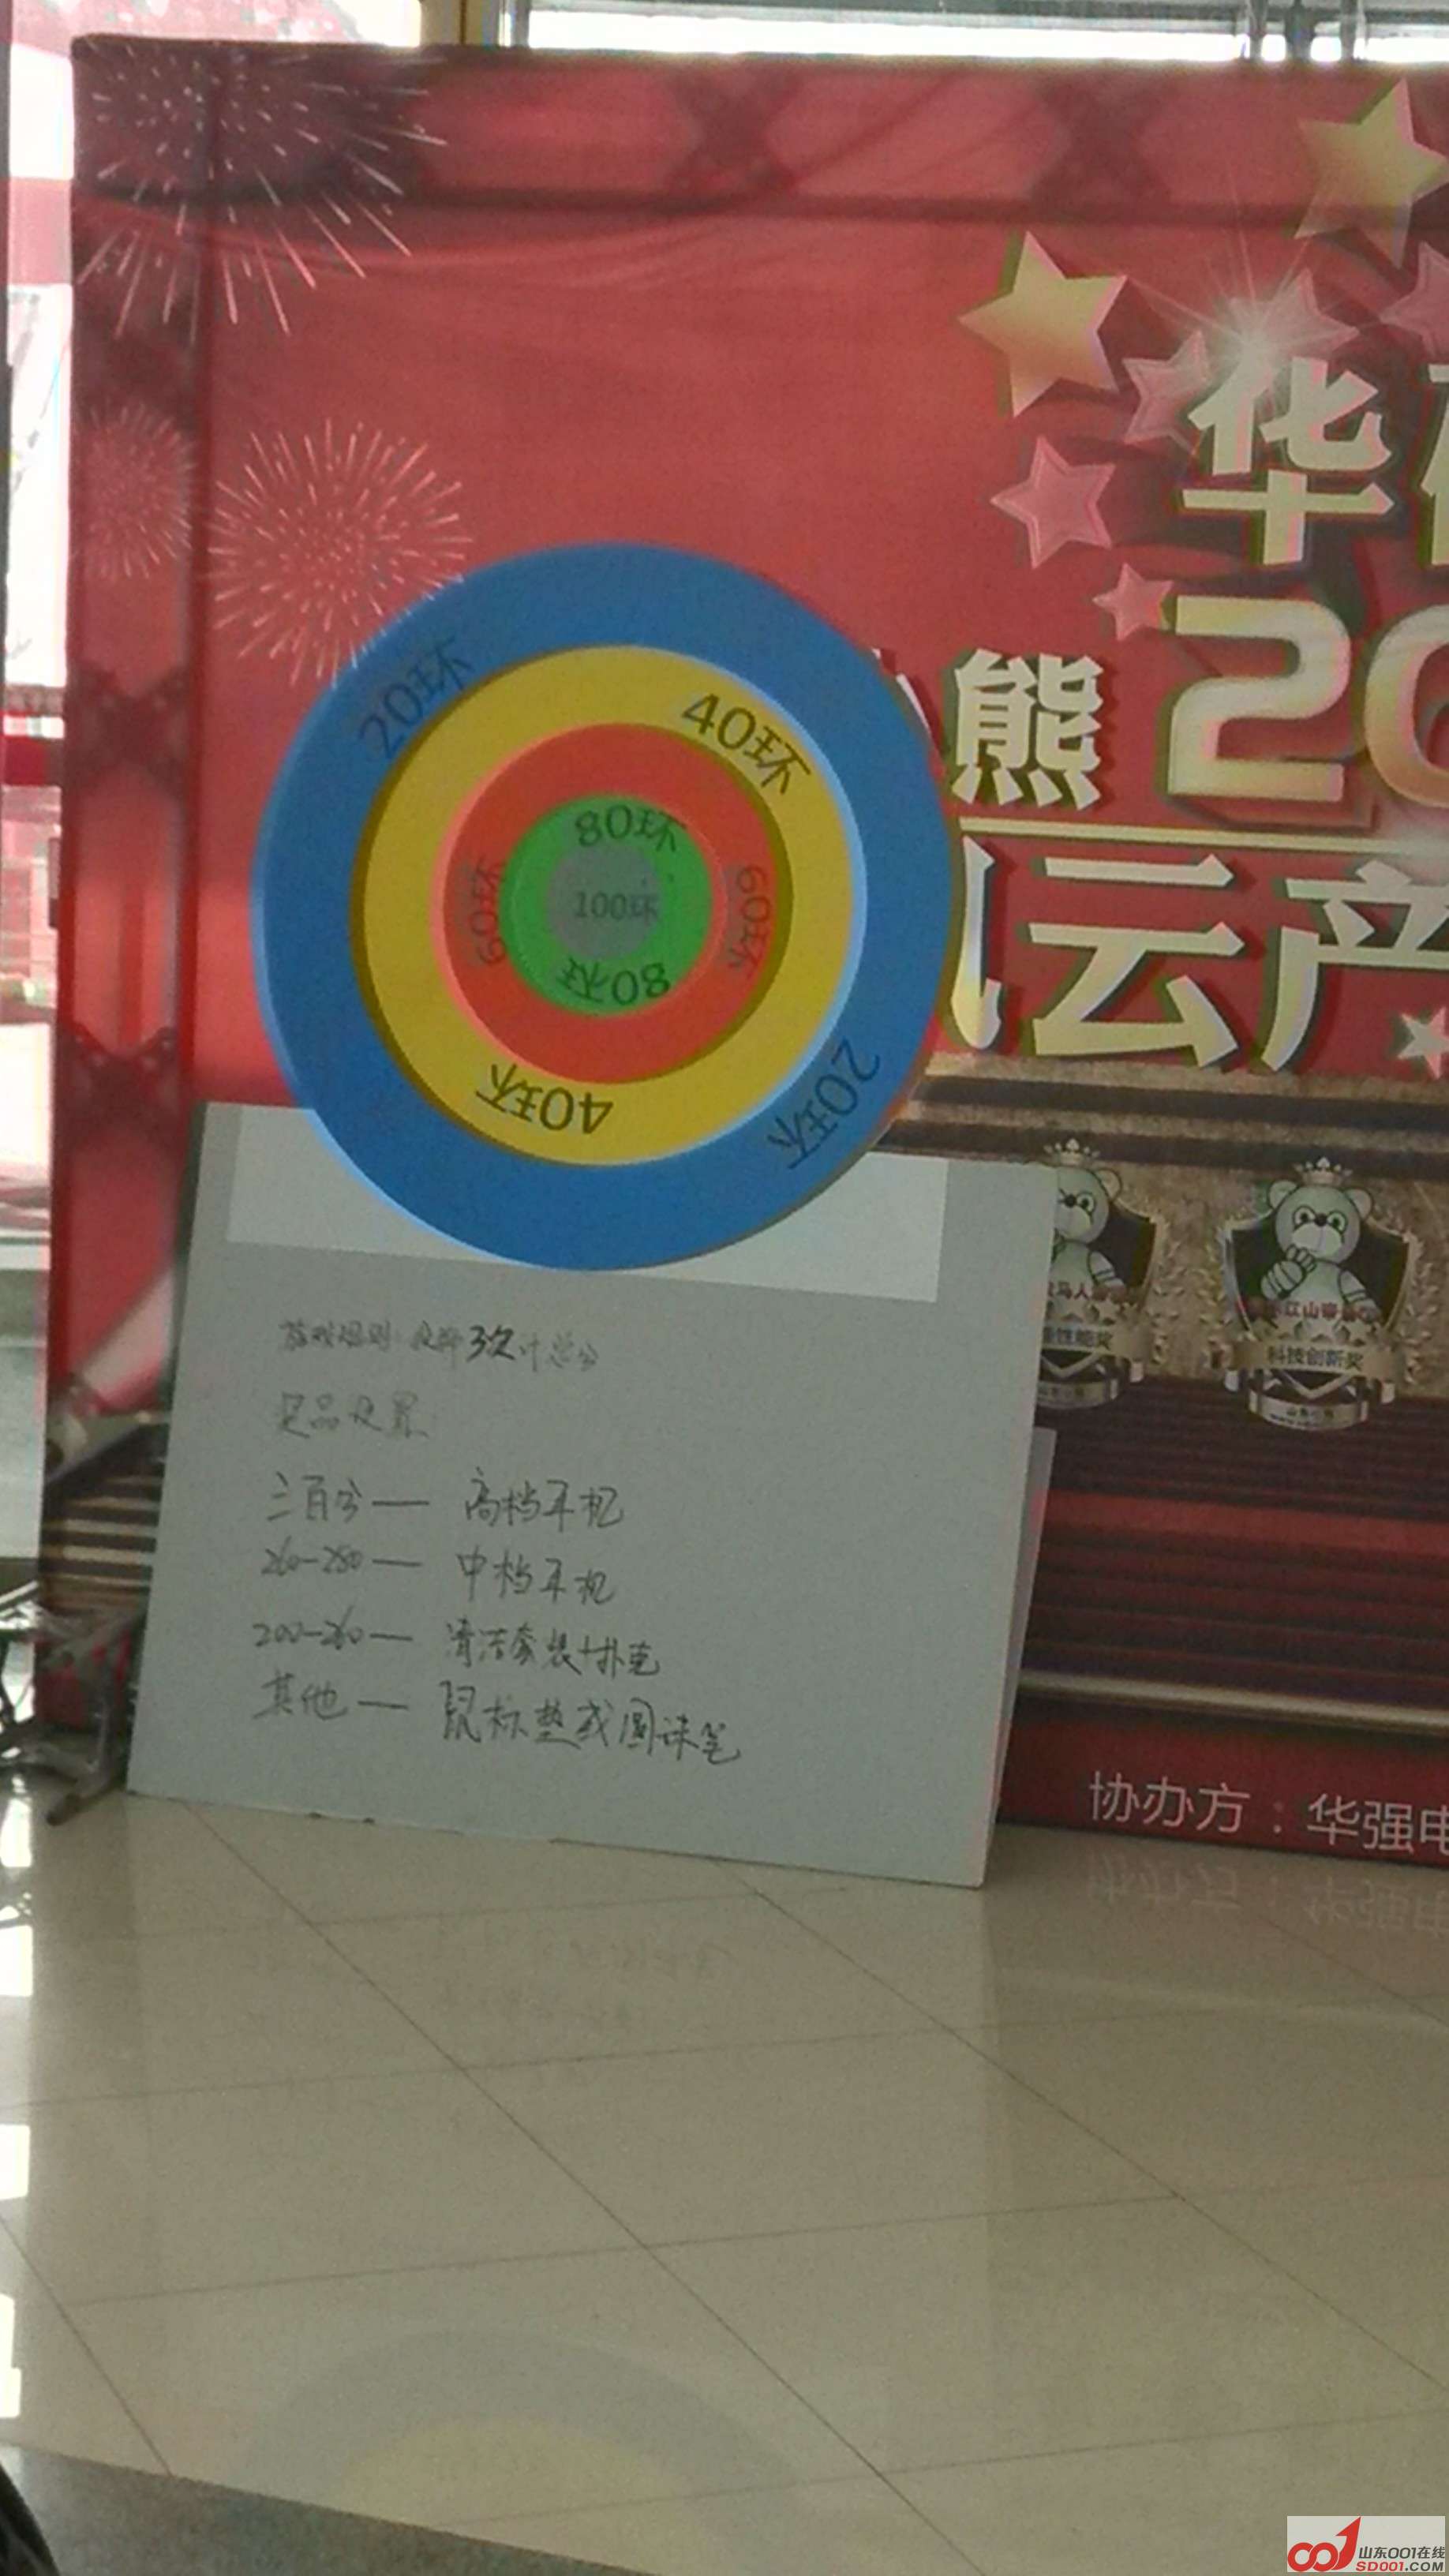 华
熊 20
云产
20环
40环
80环
60环
100环
60环
80环
40环
20环
科技创新奖
性能奖
游戏规则: 投掷3次计总分
奖品设置:
三百分— 高档耳机
260-280— 中档耳机
200-260— 清洁套装+扑克
其他— 鼠标垫或圆珠笔
协办方:华强电
山东001在线
SD001.COM